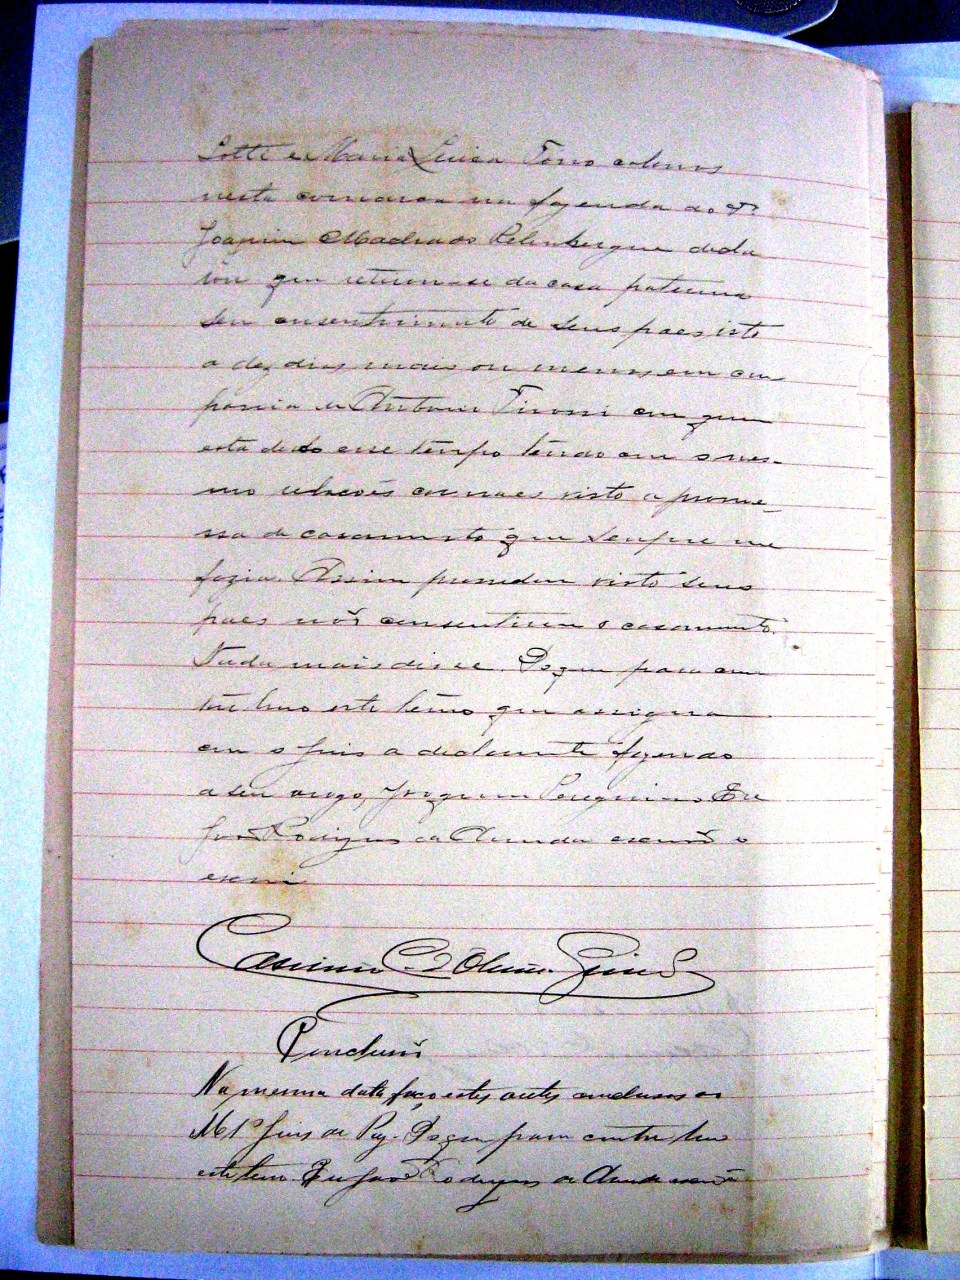 Lotti e Maria Luisa Torro colonos
nesta comarca na fazenda do Dr
Joaquim Machado decla
rou que retirou-se da casa paterna
sem consentimento de seus paes isto
a dez dias mais ou menos em com
panhia de Antonio Tironi com quem
está desde esse tempo tendo com o mes-
mo relacões carnaes visto a prome-
ssa de casamento que sempre me
fazia. Assim procedeu visto seus
paes não consentirem o casamento.
Nada mais disse. Do que para cons
tar lavro este termo que assigna
com o Juis a declarante fazendo
a seu rogo, Joaquim Peregrino. Eu
João Rodrigues de Almeida escrivão o
escrevi
Casimiro C. d'Oliveira
Conclusão
Na mesma data faço estes autos conclusos ao
M. Juis de Paz. Do que para constar lavro
este termo. Eu João Rodrigues de Almeida escrivão